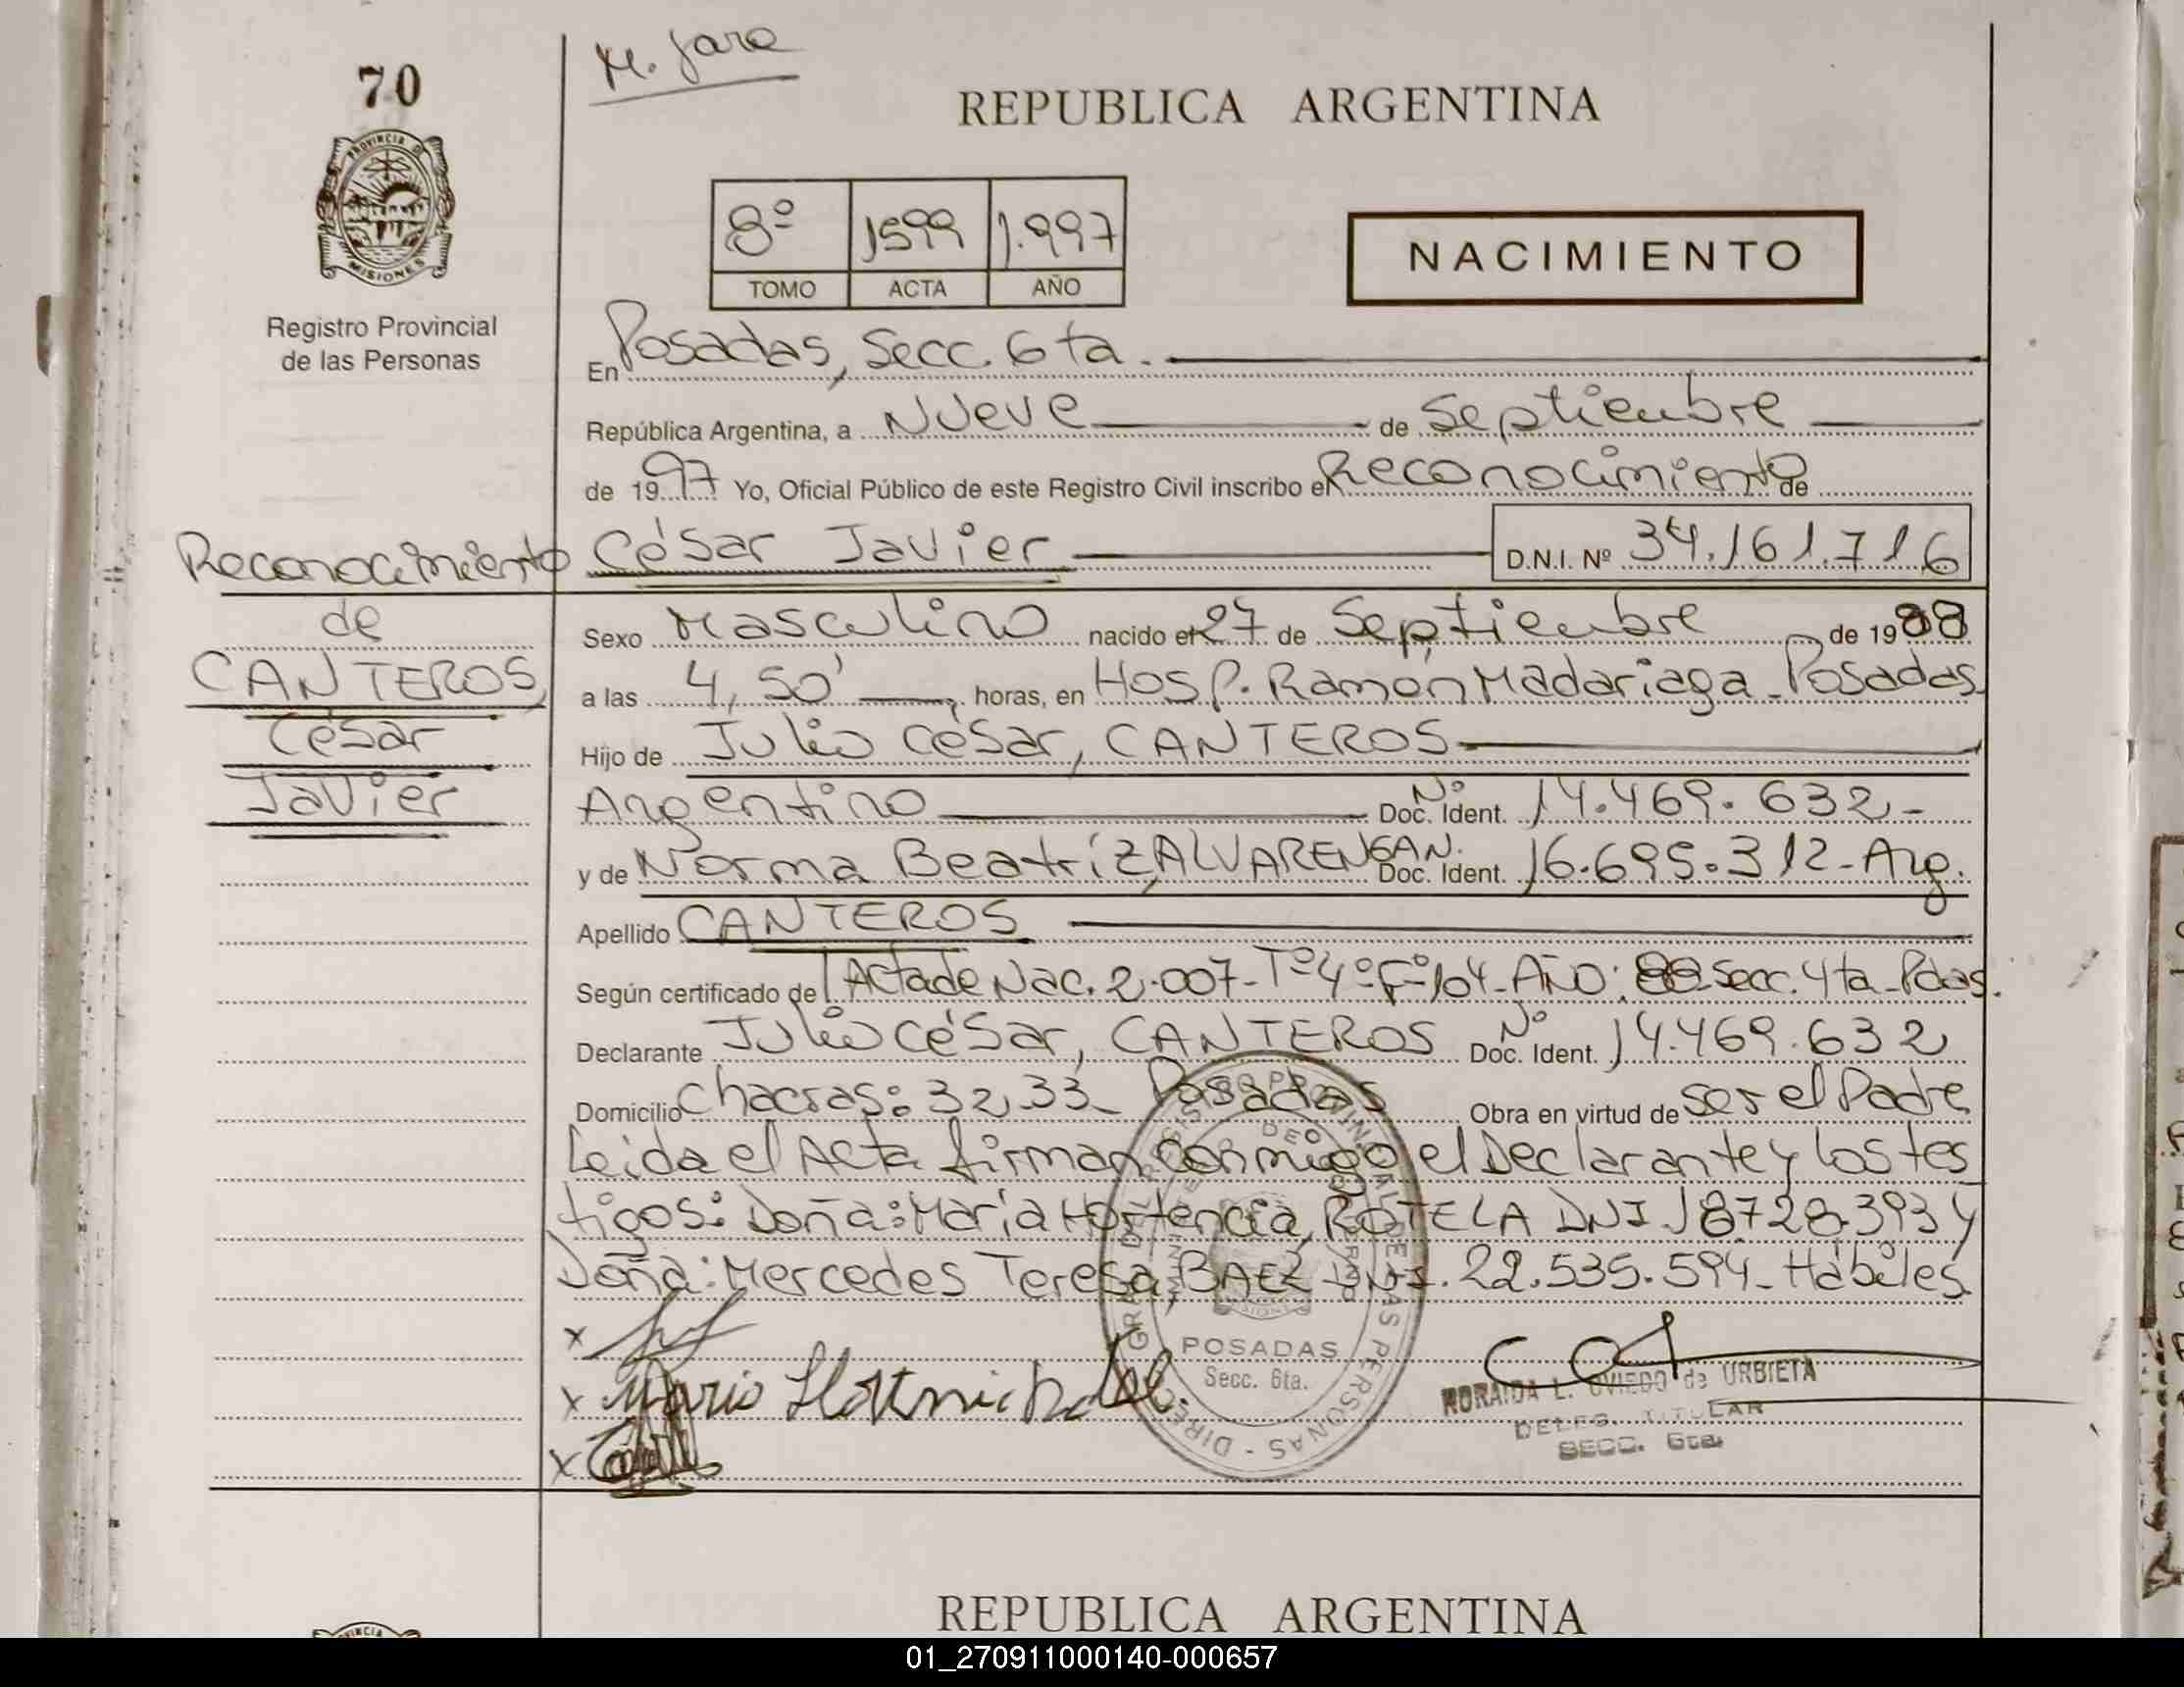 70
M. Jara
REPUBLICA ARGENTINA
PROVINCIA DE
MISIONES
Registro Provincial
de las Personas
8º 1599 1.997
TOMO ACTA AÑO
NACIMIENTO
En Posadas, Secc. 6ta.
República Argentina, a Nueve de Septiembre
de 1997 Yo, Oficial Público de este Registro Civil inscribo el Reconocimiento de
César Javier D.N.I. Nº 34.161.716
Reconocimiento
de
CANTEROS,
César
Javier
Sexo Masculino nacido el 27 de Septiembre de 1988
a las 4,50' horas, en Hosp. Ramón Madariaga - Posadas
Hijo de Julio César, CANTEROS
Argentino Nº Doc. Ident. 14.469.632-
y de Norma Beatríz, ALVARENGA N. Doc. Ident. 16.695.312-Arg.
Apellido CANTEROS
Según certificado de Acta de Nac. 2.007-Tº4º-Fº104-Año: 88 Secc. 4ta-Pdas.
Declarante Julio César, CANTEROS Nº Doc. Ident. 14.469.632
Domicilio Chacras: 32-33- Posadas Obra en virtud de ser el Padre
Leida el Acta firman conmigo el Declarante y los tes
tigos: Doña: María Hortencia, ROTELA DNI 18728.393 y
Doña: Mercedes Teresa, BAEZ DNI. 22.535.594- Hábiles
x
x
x
POSADAS
Secc. 6ta.
NORAIDA L. OVIEDO de URBIETA
DELEG. TITULAR
SECC. 6ta.
REPUBLICA ARGENTINA
01_270911000140-000657